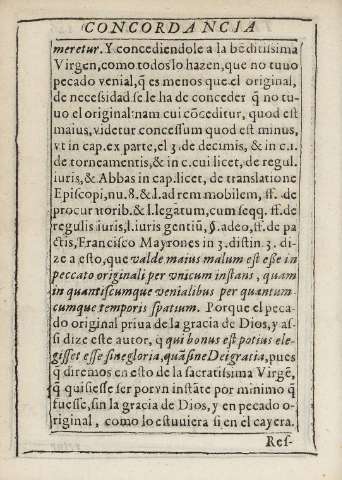 CONCORDANCIA
meretur. Y concediendole a la bẽditissima
Virgen, como todos lo hazen, que no tuuo
pecado venial, q̃ es menos que el original,
de necessidad se le ha de conceder q̃ no tu-
uo el original: nam cui cõceditur, quod est
maius, videtur concessum quod est minus,
vt in cap. ex parte, el 3. de decimis, & in c. 1.
de torneamentis, & in c. cui licet, de regul.
iuris, & Abbas in cap. licet, de translatione
Episcopi, nu. 8. & l. ad rem mobilem, ff. de
procuratorib. & l. legatum, cum seqq. ff. de
regulis iuris, l. iuris gentiũ, §. adeo, ff. de pa
ctis, Francisco Mayrones in 3. distin. 3. di-
ze a esto, que valde maius malum est esse in
peccato originali per vnicum instans, quam
in quantiscumque venialibus per quantum-
cumque temporis spatium. Porque el peca-
do original priua de la gracia de Dios, y as-
si dize este autor, q̃ qui bonus est potius ele-
gisset esse sine gloria, quã sine Dei gratia, pues
q̃ diremos en esto de la sacratissima Virgẽ,
q̃ quisiesse ser por vn instãte por minimo q̃
fuesse, sin la gracia de Dios, y en pecado o-
riginal, como lo estuuiera si en el cayera.
Res-